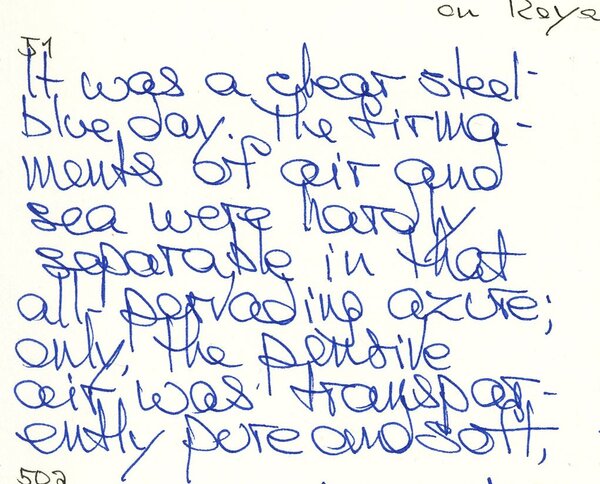 on Roya
51
It was a clear steel-
blue day. The firma-
ments of air and
sea were hardly
separable in that
all-pervading azure;
only, the pensive
air was transpar-
ently pure and soft,
502